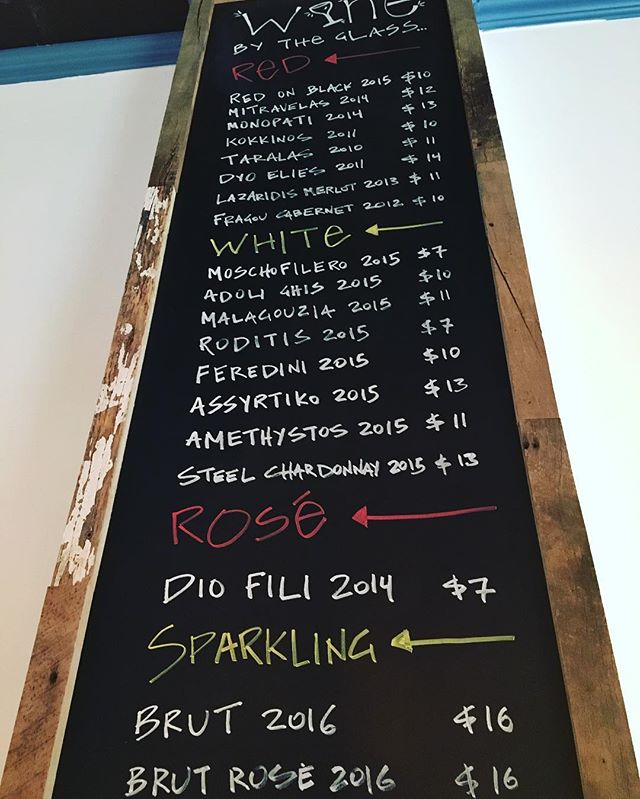 WINE
BY THE GLASS...
RED
RED ON BLACK 2015 $10
MITRAVELAS 2014 $12
MONOPATI 2014 $13
KOKKINOS 2011 $10
TARALAS 2010 $11
DYO ELIES 2011 $14
LAZARIDIS MERLOT 2013 $11
FRAGOU CABERNET 2012 $10
WHITE
MOSCHOFILERO 2015 $7
ADOLI GHIS 2015 $10
MALAGOUZIA 2015 $11
RODITIS 2015 $7
FEREDINI 2015 $10
ASSYRTIKO 2015 $13
AMETHYSTOS 2015 $11
STEEL CHARDONNAY 2015 $13
ROSÉ
DIO FILI 2014 $7
SPARKLING
BRUT 2016 $16
BRUT ROSÈ 2016 $16